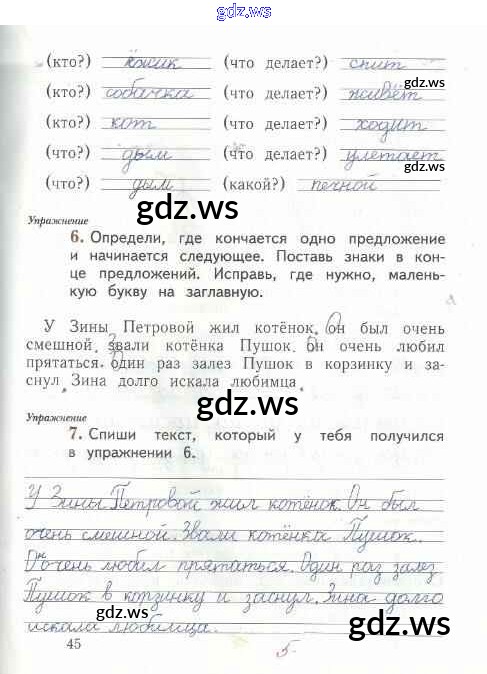 gdz.ws
(кто?) ёжик (что делает?) спит
gdz.ws
(кто?) собачка (что делает?) живёт
(кто?) кот (что делает?) ходит
(что?) дым (что делает?) улетает
gdz.ws
(что?) дым (какой?) печной
gdz.ws
Упражнение
6. Определи, где кончается одно предложение
и начинается следующее. Поставь знаки в кон-
це предложений. Исправь, где нужно, малень-
кую букву на заглавную.
У Зины Петровой жил котёнок. Он был очень
смешной. Звали котёнка Пушок. Он очень любил
прятаться. Один раз залез Пушок в корзинку и за-
снул. Зина долго искала любимца.
gdz.ws
Упражнение
7. Спиши текст, который у тебя получился
в упражнении 6.
У Зины Петровой жил котёнок. Он был
очень смешной. Звали котёнка Пушок.
Он очень любил прятаться. Один раз залез
Пушок в корзинку и заснул. Зина долго
искала любимца.
gdz.ws
gdz.ws
45
5